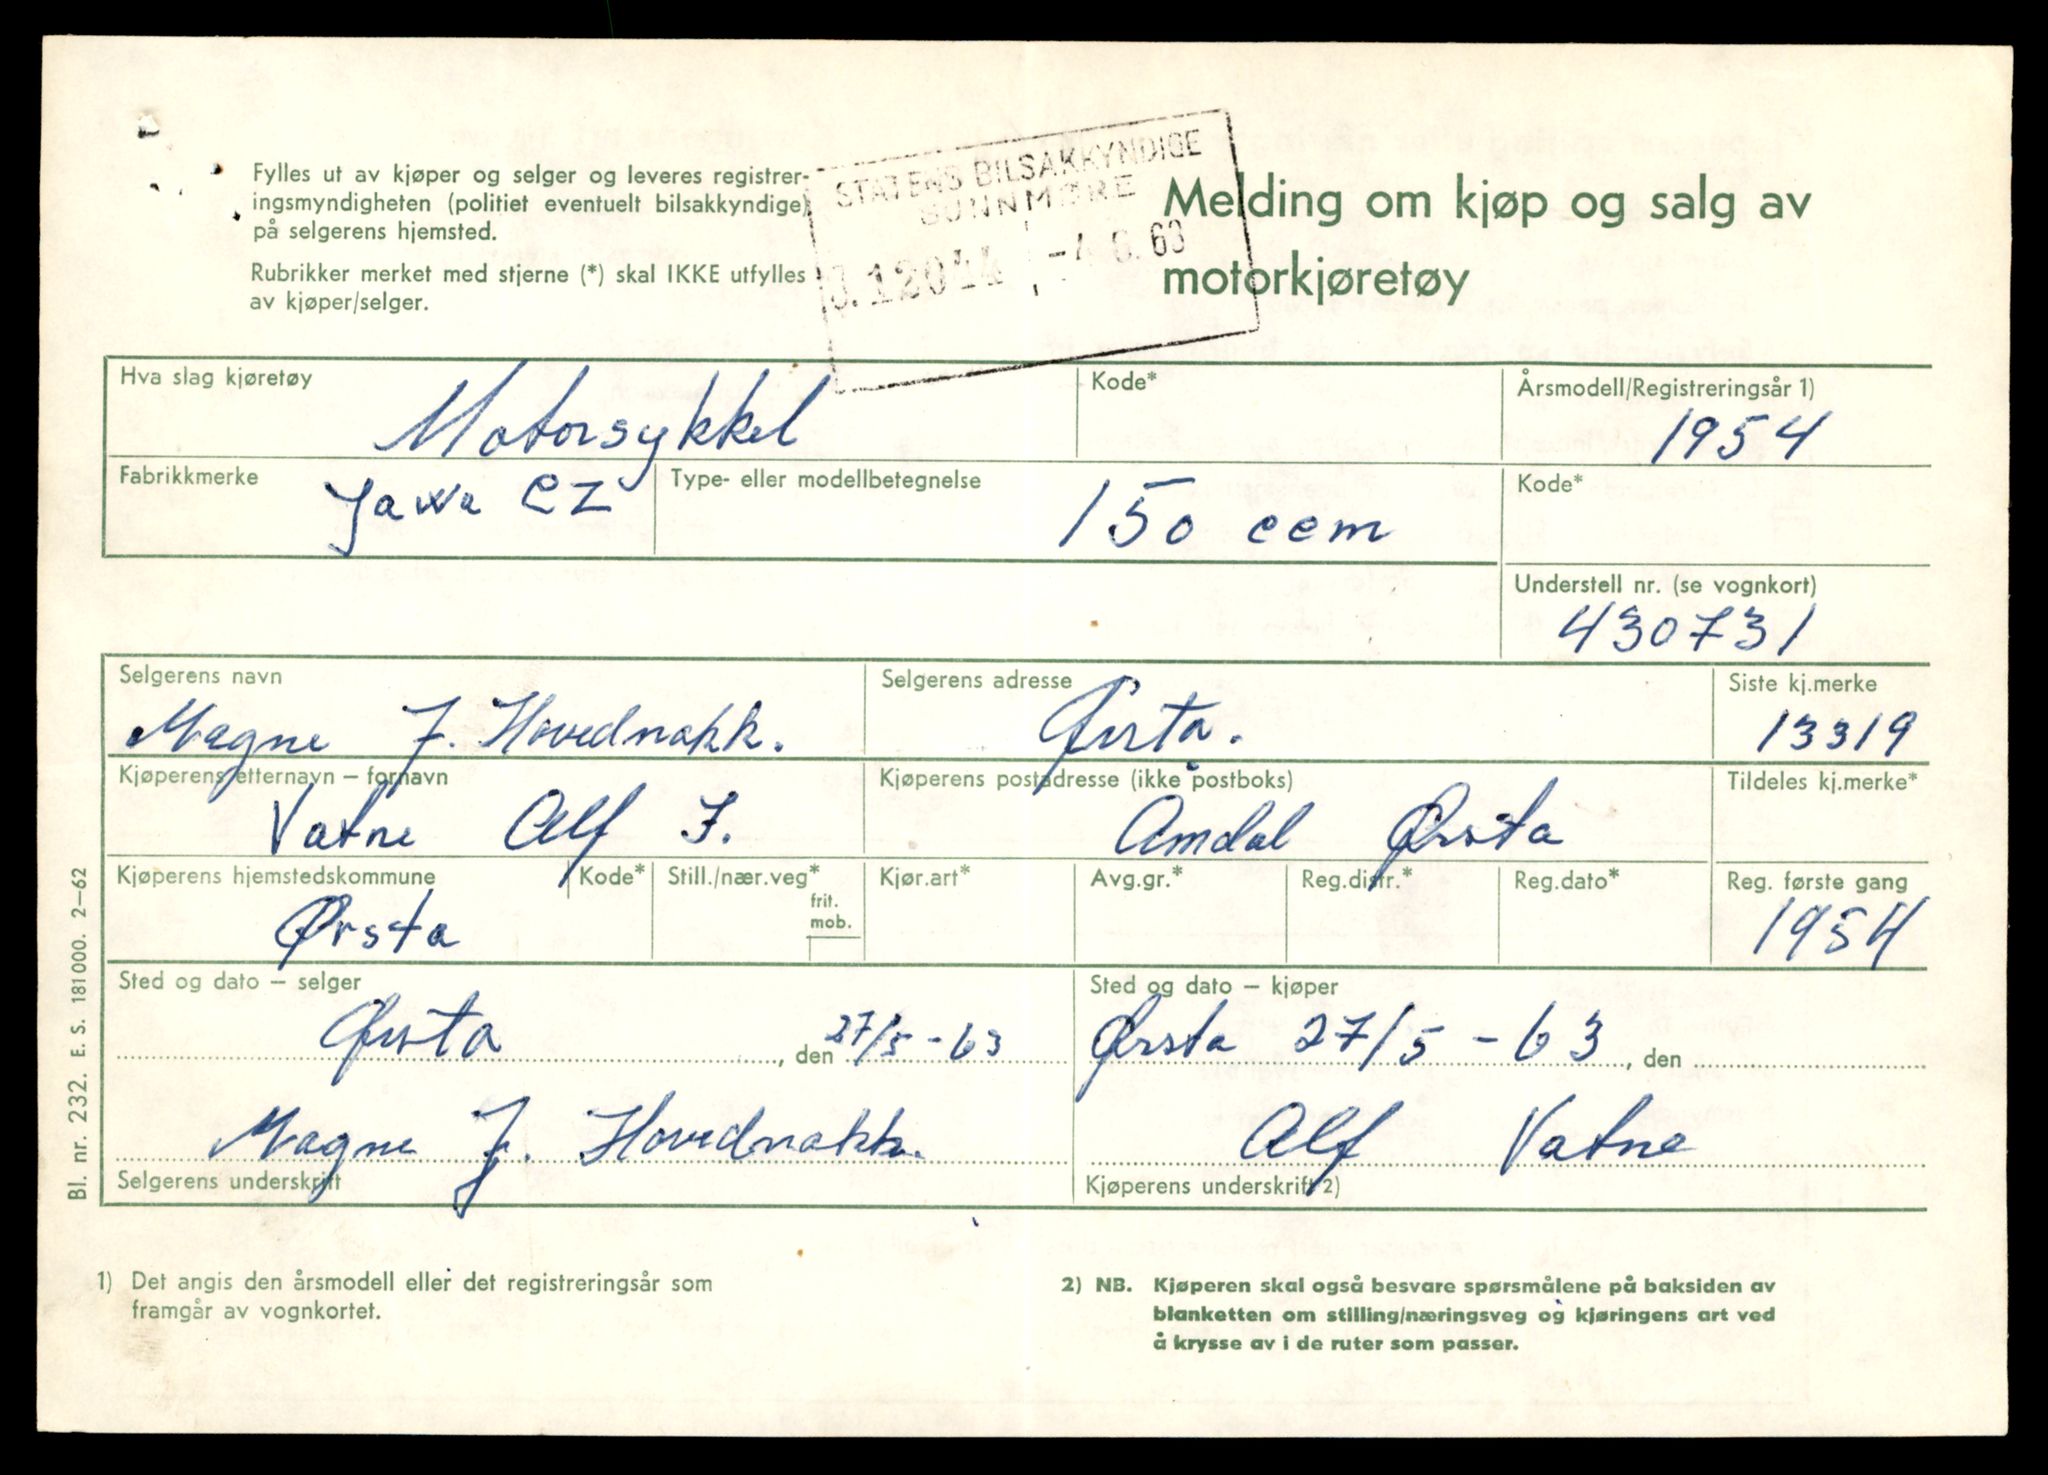 Fylles ut av kjøper og selger og leveres registrer-
ingsmyndigheten (politiet eventuelt bilsakkyndige)
på selgerens hjemsted.
Rubrikker merket med stjerne (*) skal IKKE utfylles
av kjøper/selger.
STATENS BILSAKKYNDIGE
SUNNMØRE
J.12044 -4.6.63
Melding om kjøp og salg av
motorkjøretøy
Hva slag kjøretøy
Motorsykkel
Kode*
Årsmodell/Registreringsår 1)
1954
Fabrikkmerke
Jawa CZ
Type- eller modellbetegnelse
150 ccm
Kode*
Understell nr. (se vognkort)
430731
Selgerens navn
Magne J. Hovednakk.
Selgerens adresse
Ørsta.
Siste kj.merke
13319
Kjøperens etternavn – fornavn
Vatne Alf J.
Kjøperens postadresse (ikke postboks)
Amdal Ørsta
Tildeles kj.merke*
Kjøperens hjemstedskommune
Ørsta
Kode*
Still./nær.veg*
frit.
mob.
Kjør.art*
Avg.gr.*
Reg.distr.*
Reg.dato*
Reg. første gang
1954
Sted og dato – selger
Ørsta, den 27/5-63
Sted og dato – kjøper
Ørsta 27/5-63, den
Magne J. Hovednakk.
Selgerens underskrift
Alf Vatne
Kjøperens underskrift 2)
Bl. nr. 232. E. S. 181000. 2–62
1) Det angis den årsmodell eller det registreringsår som
framgår av vognkortet.
2) NB. Kjøperen skal også besvare spørsmålene på baksiden av
blanketten om stilling/næringsveg og kjøringens art ved
å krysse av i de ruter som passer.